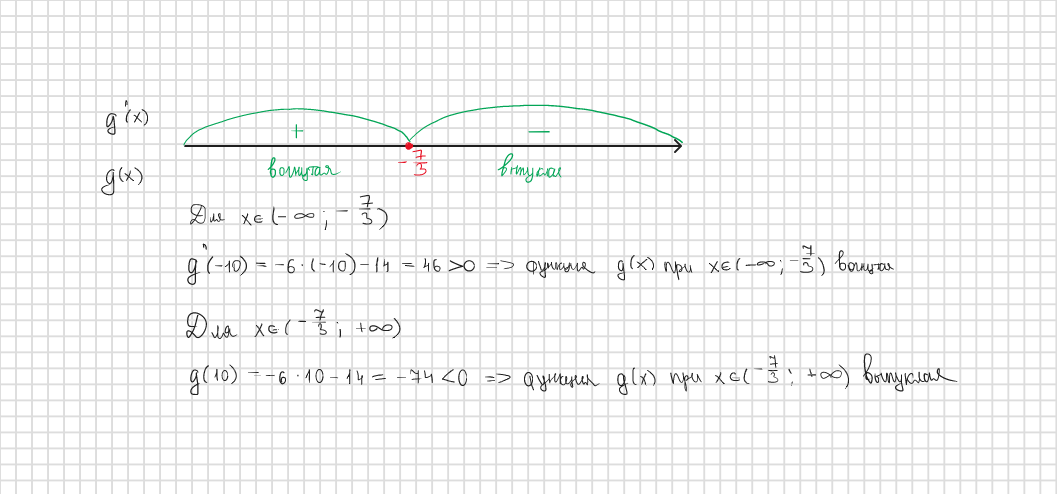 g''(x)
+ —
-7/3
g(x) вогнутая выпуклая
Для x∈(-∞; -7/3)
g''(-10) = -6·(-10)-14 = 46 >0 => функция g(x) при x∈(-∞; -7/3) вогнутая
Для x∈(-7/3; +∞)
g(10) = -6·10-14 = -74 <0 => функция g(x) при x∈(-7/3; +∞) выпуклая